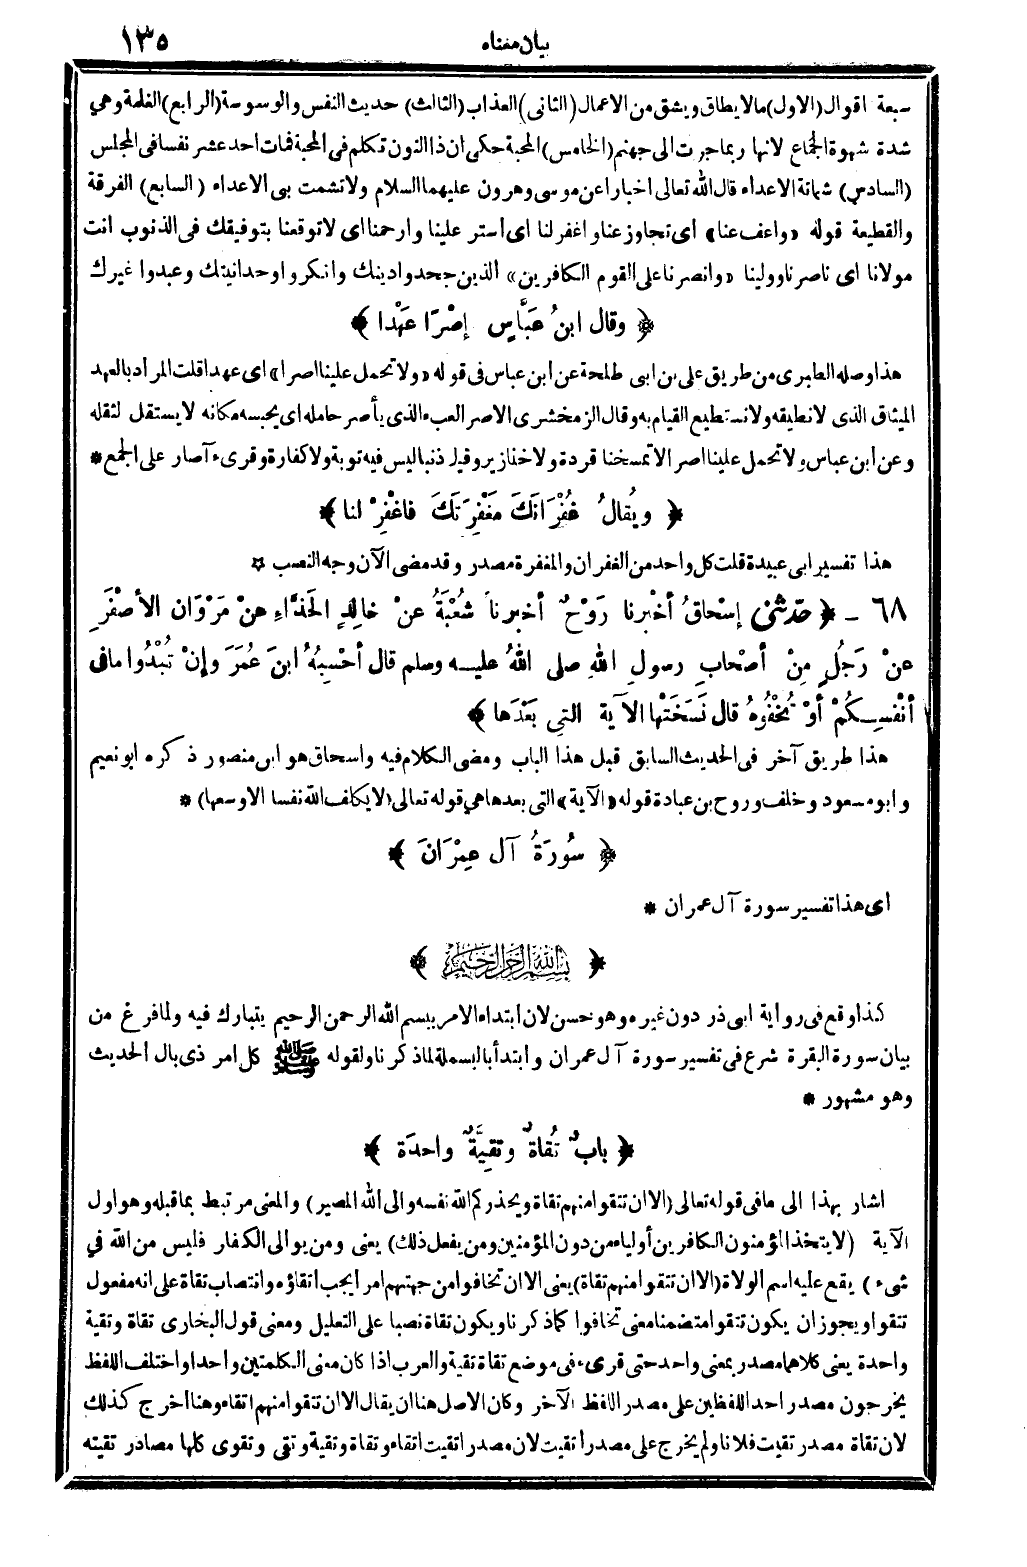 بيان معناه ١٣٥
سبعة اقوال (الاول) مالا يطاق ويشق من الاعمال (الثانى) العذاب (الثالث) حديث النفس والوسوسة (الرابع) الغلمة وهي
شدة شهوة الجماع لانها ربما جرت الى جهنم (الخامس) المحبة حكى ان ذا النون تكلم فى المحبة فمات احد عشر نفسا فى المجلس
(السادس) شماتة الاعداء قال الله تعالى اخبارا عن موسى وهرون عليهما السلام ولا تشمت بى الاعداء (السابع) الفرقة
والقطيعة قوله «واعف عنا» اى تجاوز عنا واغفر لنا اى استر علينا وارحمنا اى لا توقعنا بتوفيقك فى الذنوب انت
مولانا اى ناصرنا وولينا «وانصرنا على القوم الكافرين» الذين جحدوا دينك وانكروا وحدانيتك وعبدوا غيرك
﴿ وقال ابنُ عَبَّاسٍ إصْرًا عَهْدًا ﴾
هذا وصله الطبرى من طريق على بن ابى طلحة عن ابن عباس فى قوله «ولا تحمل علينا اصرا» اى عهدا قلت المراد بالعهد
الميثاق الذى لا نطيقه ولا نستطيع القيام به وقال الزمخشرى الاصر العبء الذى يأصر حامله اى يحبسه مكانه لا يستقل لثقله
وعن ابن عباس ولا تحمل علينا اصرا لا تمسخنا قردة ولا خنازير وقيل ذنبا ليس فيه توبة ولا كفارة وقرىء آصار على الجمع *
﴿ ويُقالُ غُفْرَانَكَ مَغْفِرَتَكَ فاغْفِرْ لنا ﴾
هذا تفسير ابى عبيدة قلت كل واحد من الغفران والمغفرة مصدر وقد مضى الآن وجه النصب *
٦٨ - ﴿ حدّثنى إسْحاقُ أخْبرنا رَوْحٌ أخبرنا شُعْبَةُ عنْ خالِدٍ الحَذَّاءِ عنْ مَرْوَان الأصْفَرِ
عنْ رَجُلٍ مِنْ أصْحابِ رسولِ اللهِ صلى اللهُ عليه وسلم قال أحْسِبُهُ ابنَ عُمَرَ وإنْ تُبْدُوا مافى
أنْفُسِكُمْ أوْ تُخْفُوهُ قال نَسَخَتْها الآيةُ التِي بَعْدَها ﴾
هذا طريق آخر فى الحديث السابق قبل هذا الباب ومضى الكلام فيه واسحاق هو ابن منصور ذكره ابو نعيم
وابو مسعود وخلف وروح بن عبادة قوله «الآية» التى بعدها هى قوله تعالى (لا يكلف الله نفسا الا وسعها) *
﴿ سُورَةُ آل عِمْرَانَ ﴾
اى هذا تفسير سورة آل عمران *
﴿ بسم الله الرحمن الرحيم ﴾
كذا وقع فى رواية ابى ذر دون غيره وهو حسن لان ابتداء الامر ببسم الله الرحمن الرحيم يتبارك فيه ولما فرغ من
بيان سورة البقرة شرع فى تفسير سورة آل عمران وابتدأ بالبسملة لما ذكرنا ولقوله ﷺ كل امر ذى بال الحديث
وهو مشهور *
﴿ بابٌ تُقاةٌ وتقِيَّةٌ واحدَة ﴾
اشار بهذا الى ما فى قوله تعالى (الا ان تتقوا منهم تقاة ويحذركم الله نفسه والى الله المصير) والمعنى مرتبط بما قبله وهو اول
الآية (لا يتخذ المؤمنون الكافرين أولياء من دون المؤمنين ومن يفعل ذلك) يعنى ومن يوالى الكفار فليس من الله في
شىء) يقع عليه اسم الولاة (الا ان تتقوا منهم تقاة) يعنى الا ان تخافوا من جهتهم امرا يجب اتقاؤه وانتصاب تقاة على انه مفعول
تتقوا ويجوز ان يكون تتقوا متضمنا معنى تخافوا كما ذكرنا ويكون تقاة نصبا على التعليل ومعنى قول البخارى تقاة وتقية
واحدة يعنى كلاهما مصدر بمعنى واحد حتى قرىء فى موضع تقاة تقية والعرب اذا كان معنى الكلمتين واحدا واختلف اللفظ
يخرجون مصدر احد اللفظين على مصدر اللفظ الآخر وكان الاصل هنا ان يقال الا ان تتقوا منهم اتقاء وهنا أخرج كذلك
لان تقاة مصدر تقيت فلانا ولم يخرج على مصدر اتقيت لان مصدر اتقيت اتقاء وتقاة وتقية وتقى وتقوى كلها مصادر تقيته